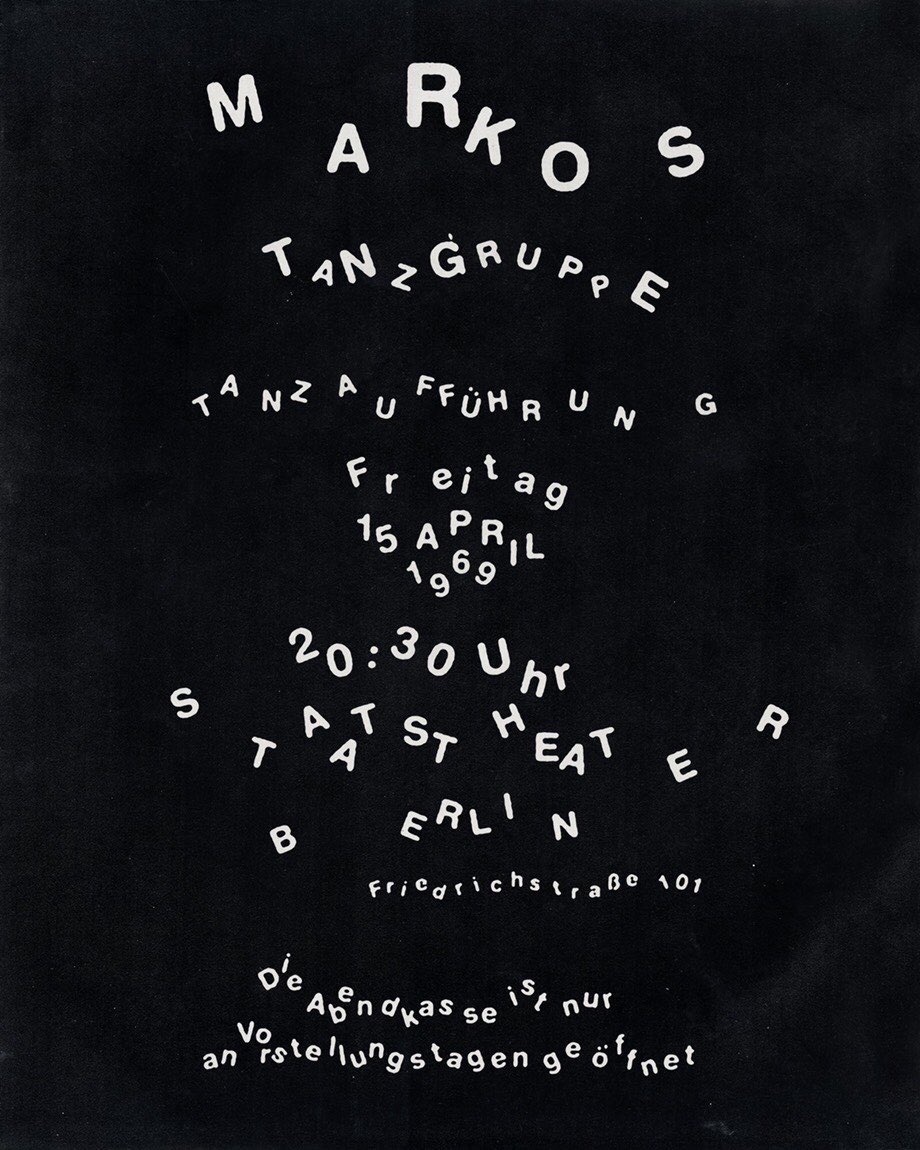 MARKOS
TANZGRUPPE
TANZAUFFÜHRUNG
Freitag
15 APRIL
1969
20:30 Uhr
STAATSTHEATER
BERLIN
Friedrichstraße 101
Die Abendkasse ist nur
an Vorstellungstagen geöffnet